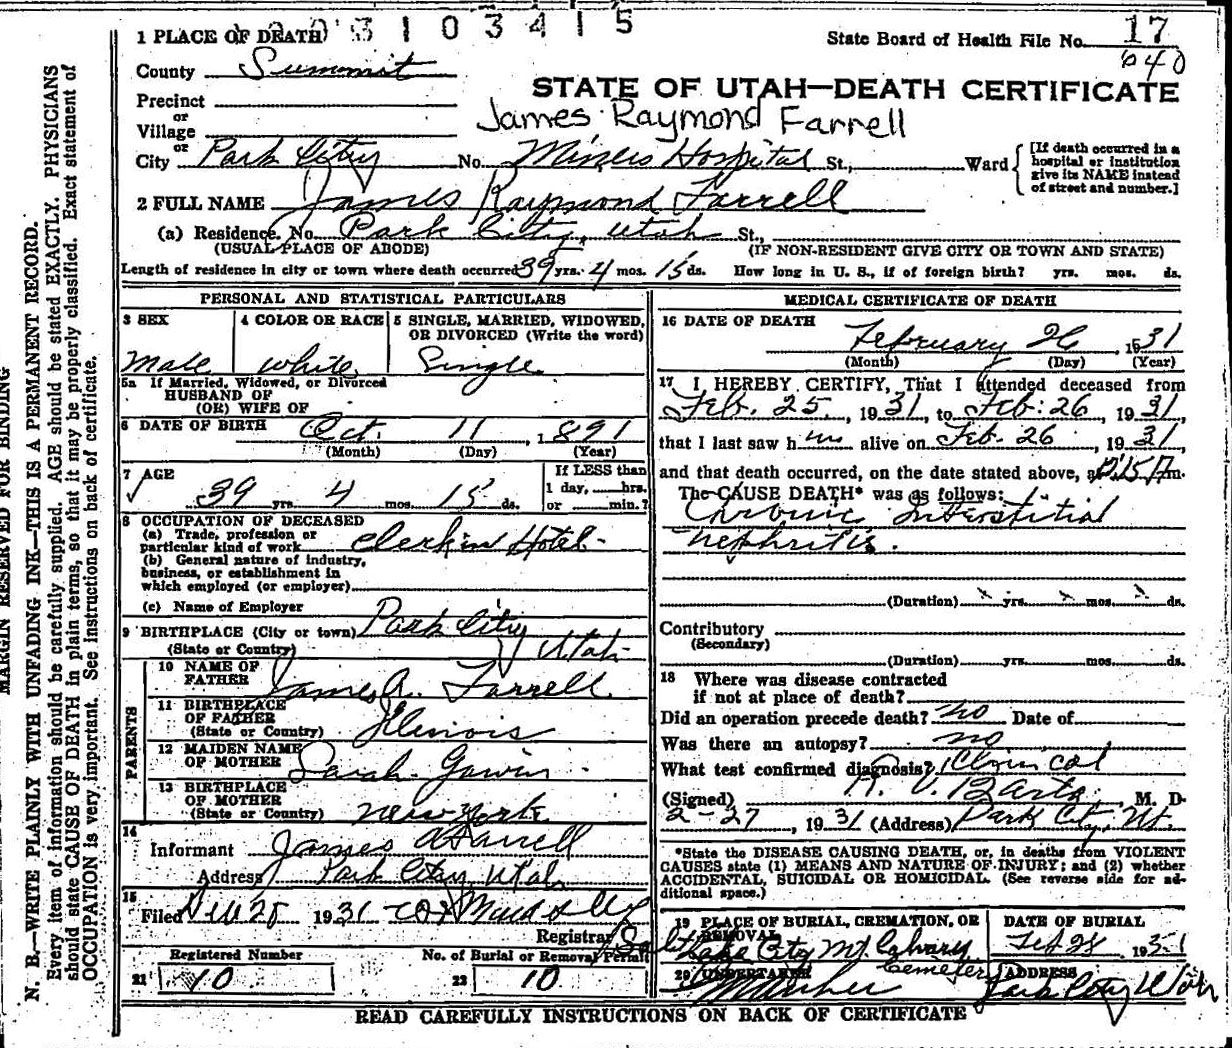 3103415
1 PLACE OF DEATH
State Board of Health File No. 17
040
County Summit
STATE OF UTAH—DEATH CERTIFICATE
Precinct
or
Village
James Raymond Farrell
or
City Park City No. Miners Hospital St., Ward
[If death occurred in a
hospital or institution
give its NAME instead
of street and number.]
2 FULL NAME James Raymond Farrell
(a) Residence. No. Park City, Utah St.,
(USUAL PLACE OF ABODE) (IF NON-RESIDENT GIVE CITY OR TOWN AND STATE)
Length of residence in city or town where death occurred 39 yrs. 4 mos. 15 ds. How long in U. S., if of foreign birth? yrs. mos. ds.
PERSONAL AND STATISTICAL PARTICULARS
3 SEX
Male
4 COLOR OR RACE
White
5 SINGLE, MARRIED, WIDOWED,
OR DIVORCED (Write the word)
Single
5a If Married, Widowed, or Divorced
HUSBAND OF
(OR) WIFE OF
6 DATE OF BIRTH Oct. 11, 1891
(Month) (Day) (Year)
7 AGE
39 yrs. 4 mos. 15 ds.
If LESS than
1 day, hrs.
or min.?
8 OCCUPATION OF DECEASED
(a) Trade, profession or
particular kind of work Clerk in Hotel
(b) General nature of industry,
business, or establishment in
which employed (or employer)
(c) Name of Employer
9 BIRTHPLACE (City or town) Park City
(State or Country) Utah
PARENTS
10 NAME OF
FATHER James A. Farrell
11 BIRTHPLACE
OF FATHER
(State or Country) Illinois
12 MAIDEN NAME
OF MOTHER Sarah Gawin
13 BIRTHPLACE
OF MOTHER
(State or Country) New York
14
Informant James A Farrell
Address Park City Utah
15
Filed 28 1931
Registrar
Registered Number
21 10
No. of Burial or Removal Permit
22 10
MEDICAL CERTIFICATE OF DEATH
16 DATE OF DEATH
February 26, 1931
(Month) (Day) (Year)
17 I HEREBY CERTIFY, That I attended deceased from
Feb. 25, 1931, to Feb. 26, 1931,
that I last saw him alive on Feb. 26, 1931
and that death occurred, on the date stated above, at m.
The CAUSE DEATH* was as follows:
Chronic Interstitial
Nephritis.
(Duration) yrs. mos. ds.
Contributory
(Secondary)
(Duration) yrs. mos. ds.
18 Where was disease contracted
if not at place of death?
Did an operation precede death? no Date of
Was there an autopsy? no
What test confirmed diagnosis? Clinical
(Signed) M. D.
2-27, 1931 (Address) Park City, Ut.
*State the DISEASE CAUSING DEATH, or, in deaths from VIOLENT
CAUSES state (1) MEANS AND NATURE OF INJURY; and (2) whether
ACCIDENTAL, SUICIDAL OR HOMICIDAL. (See reverse side for ad-
ditional space.)
19 PLACE OF BURIAL, CREMATION, OR
REMOVAL
Salt Lake City Mt Calvary
Cemetery
DATE OF BURIAL
Feb 28 1931
20 UNDERTAKER
ADDRESS
Park City Utah
READ CAREFULLY INSTRUCTIONS ON BACK OF CERTIFICATE
MARGIN RESERVED FOR BINDING
N. B.—WRITE PLAINLY WITH UNFADING INK—THIS IS A PERMANENT RECORD.
Every item of information should be carefully supplied. AGE should be stated EXACTLY. PHYSICIANS
should state CAUSE OF DEATH in plain terms, so that it may be properly classified. Exact statement of
OCCUPATION is very important. See instructions on back of certificate.